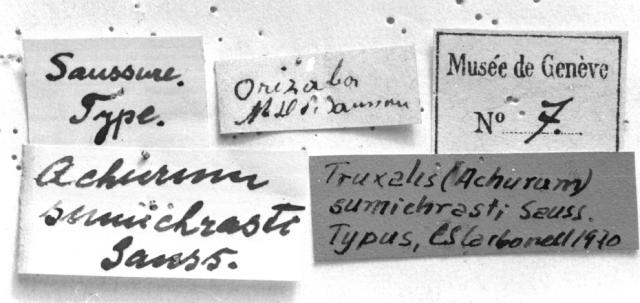 Saussure.
Type.
Orizaba
Mr H. d. Saussure
Musée de Genève
Nº 7.
Achurum
sumichrasti
Sauss.
Truxalis (Achurum)
sumichrasti Sauss.
Typus, CSCarbonell 1970